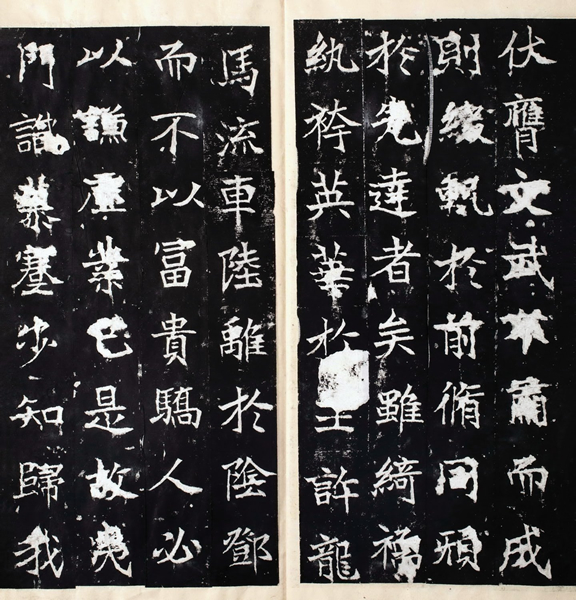 伏膺文武不肅而成
則軌於前脩同
於先達者矣雖綺襦
紈袴英華於王許龍
馬流車陸離於陰鄧
而不以富貴驕人必
以謙虛業己是故夷
門識慕蹇步知歸我